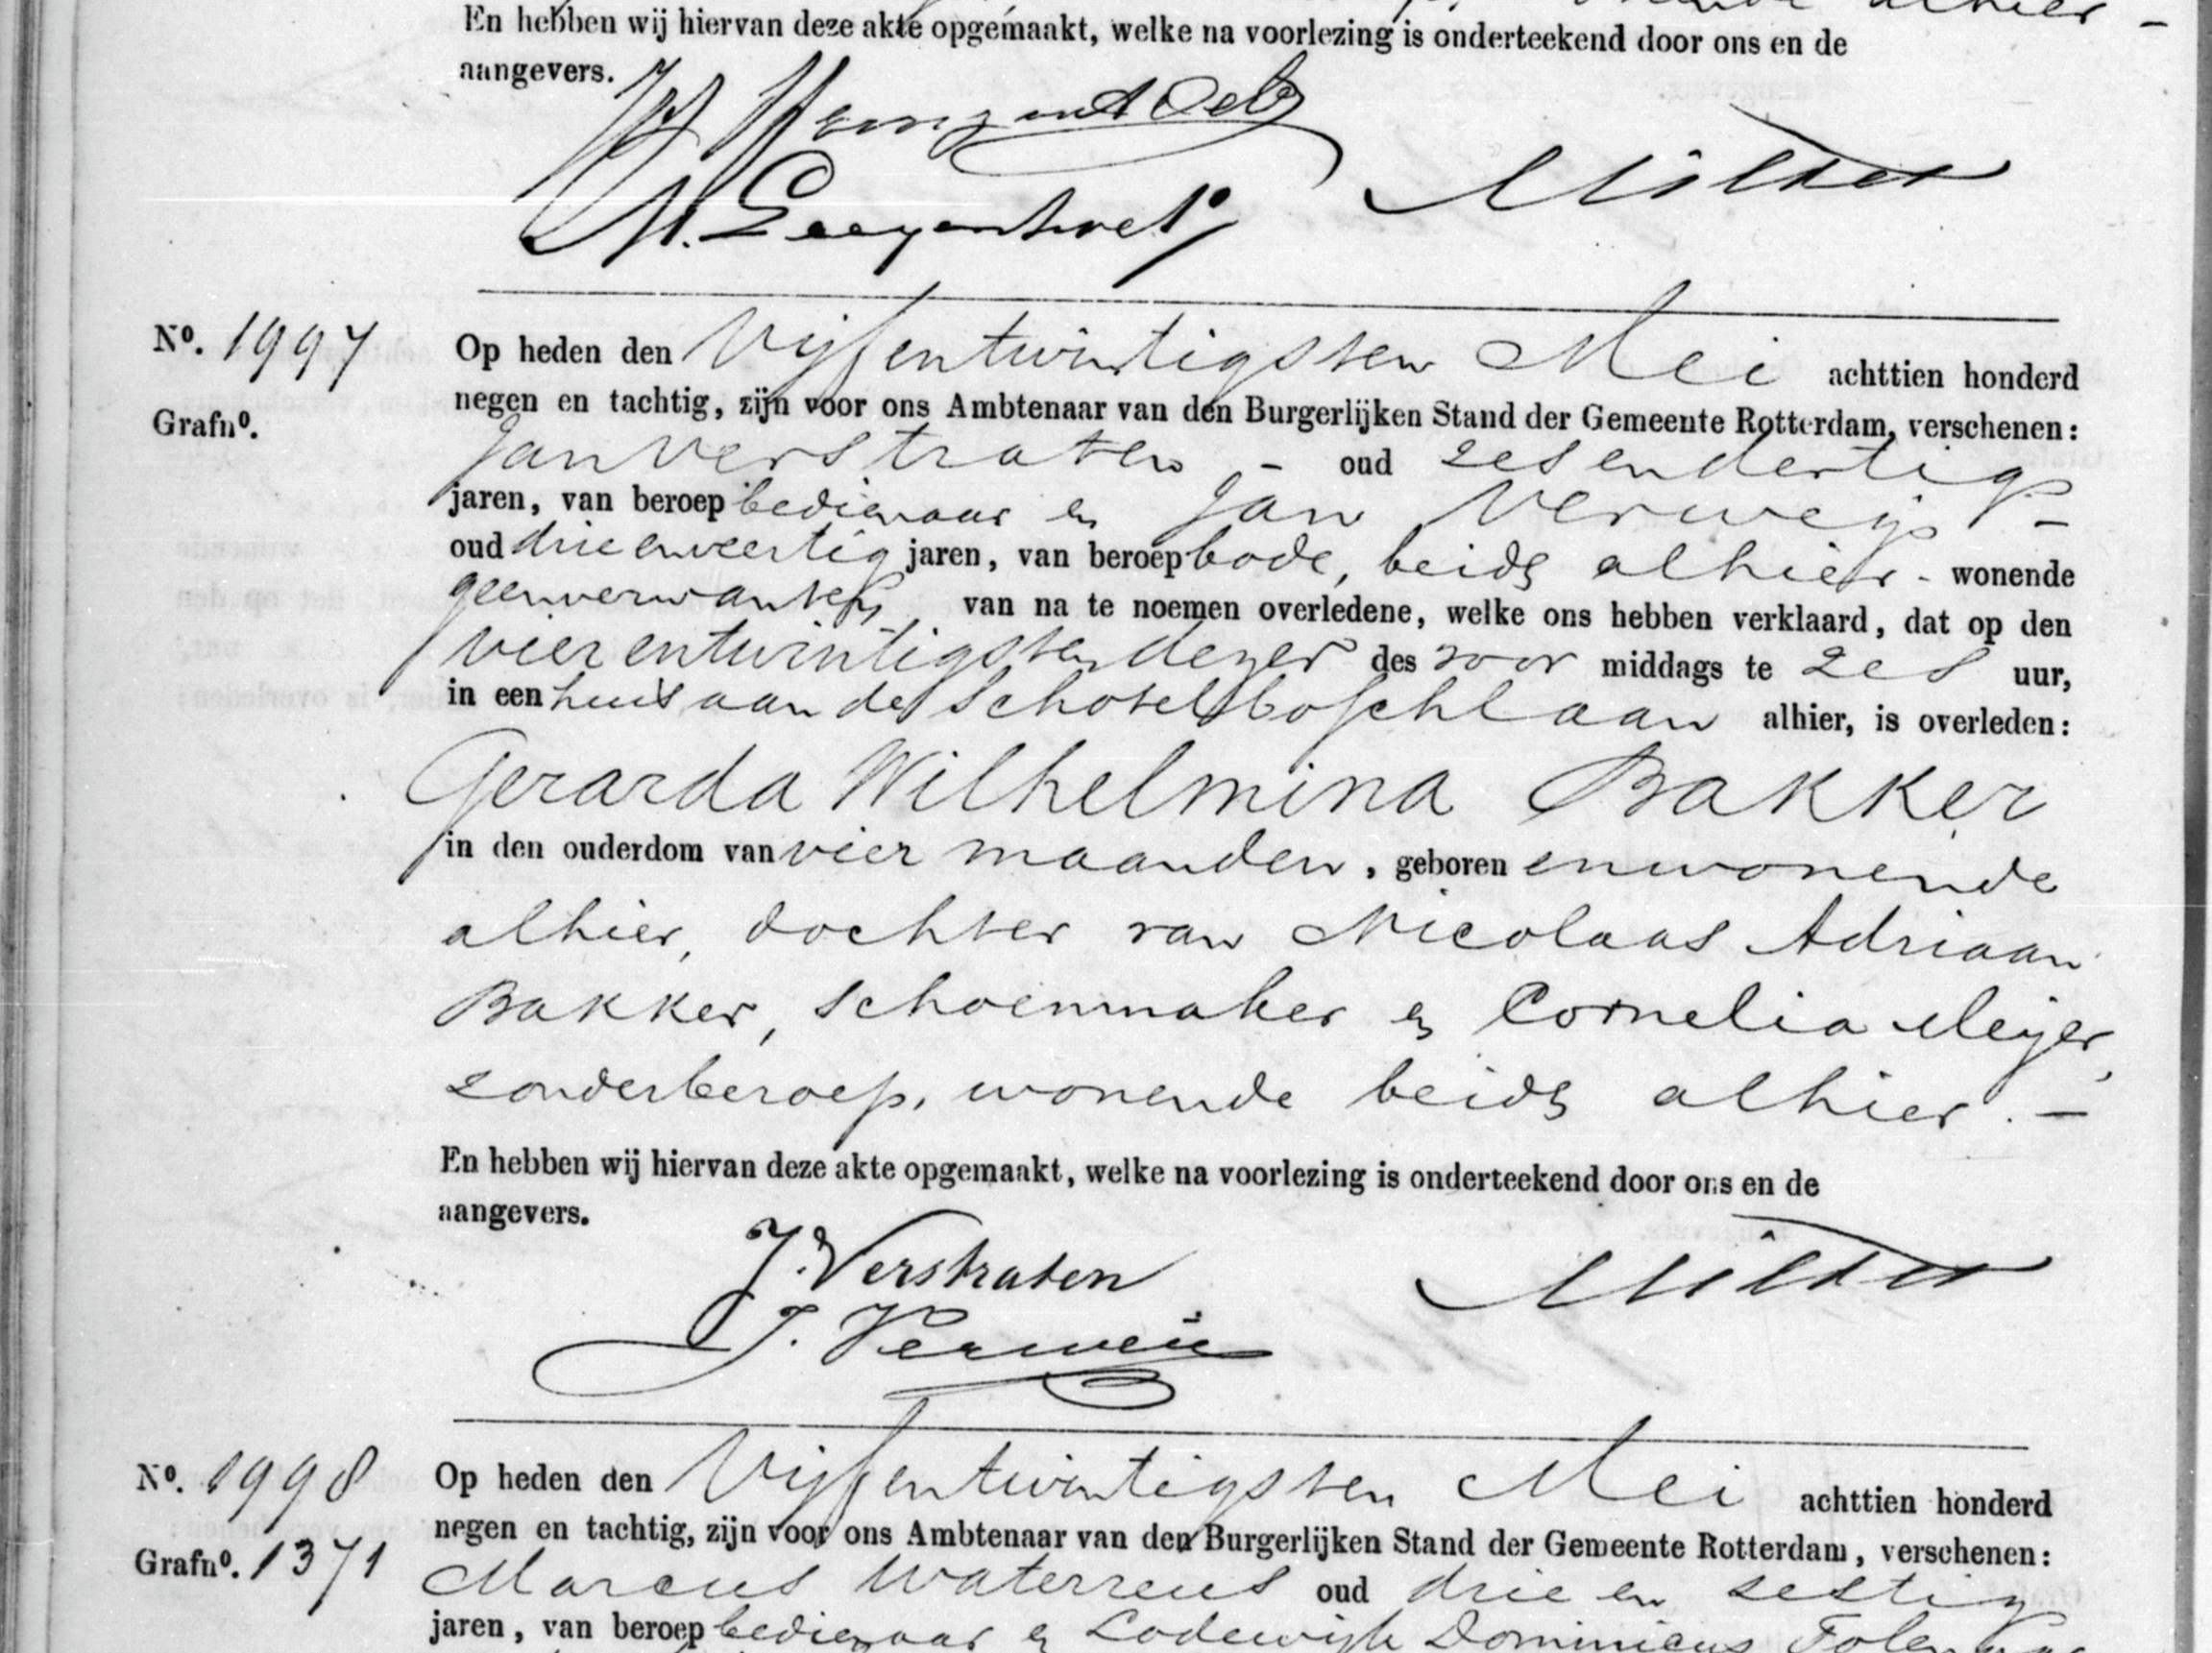 alhier -
En hebben wij hiervan deze akte opgemaakt, welke na voorlezing is onderteekend door ons en de
aangevers.
No. 1997 Op heden den Vijfentwintigsten Mei achttien honderd
negen en tachtig, zijn voor ons Ambtenaar van den Burgerlijken Stand der Gemeente Rotterdam, verschenen:
Grafno.
Jan Verstraten - oud zesendertig
jaren, van beroep bedienaar en Jan Verweij -
oud drieenveertig jaren, van beroep bode, beide alhier - wonende
geenverwanten van na te noemen overledene, welke ons hebben verklaard, dat op den
vierentwintigsten dezer des voor middags te zes uur,
in een huis aan de Schotelboschlaan alhier, is overleden:
Gerarda Wilhelmina Bakker
in den ouderdom van vier maanden, geboren en wonende
alhier, dochter van Nicolaas Adriaan
Bakker, schoenmaker en Cornelia Meijer,
zonder beroep, wonende beide alhier. -
En hebben wij hiervan deze akte opgemaakt, welke na voorlezing is onderteekend door ons en de
aangevers.
J. Verstraten
J. Verweij
No. 1998 Op heden den Vijfentwintigsten Mei achttien honderd
negen en tachtig, zijn voor ons Ambtenaar van den Burgerlijken Stand der Gemeente Rotterdam, verschenen:
Grafno. 1371 Marcus Waterreus oud drie en zestig
jaren, van beroep bedienaar en Lodewijk Dominicus